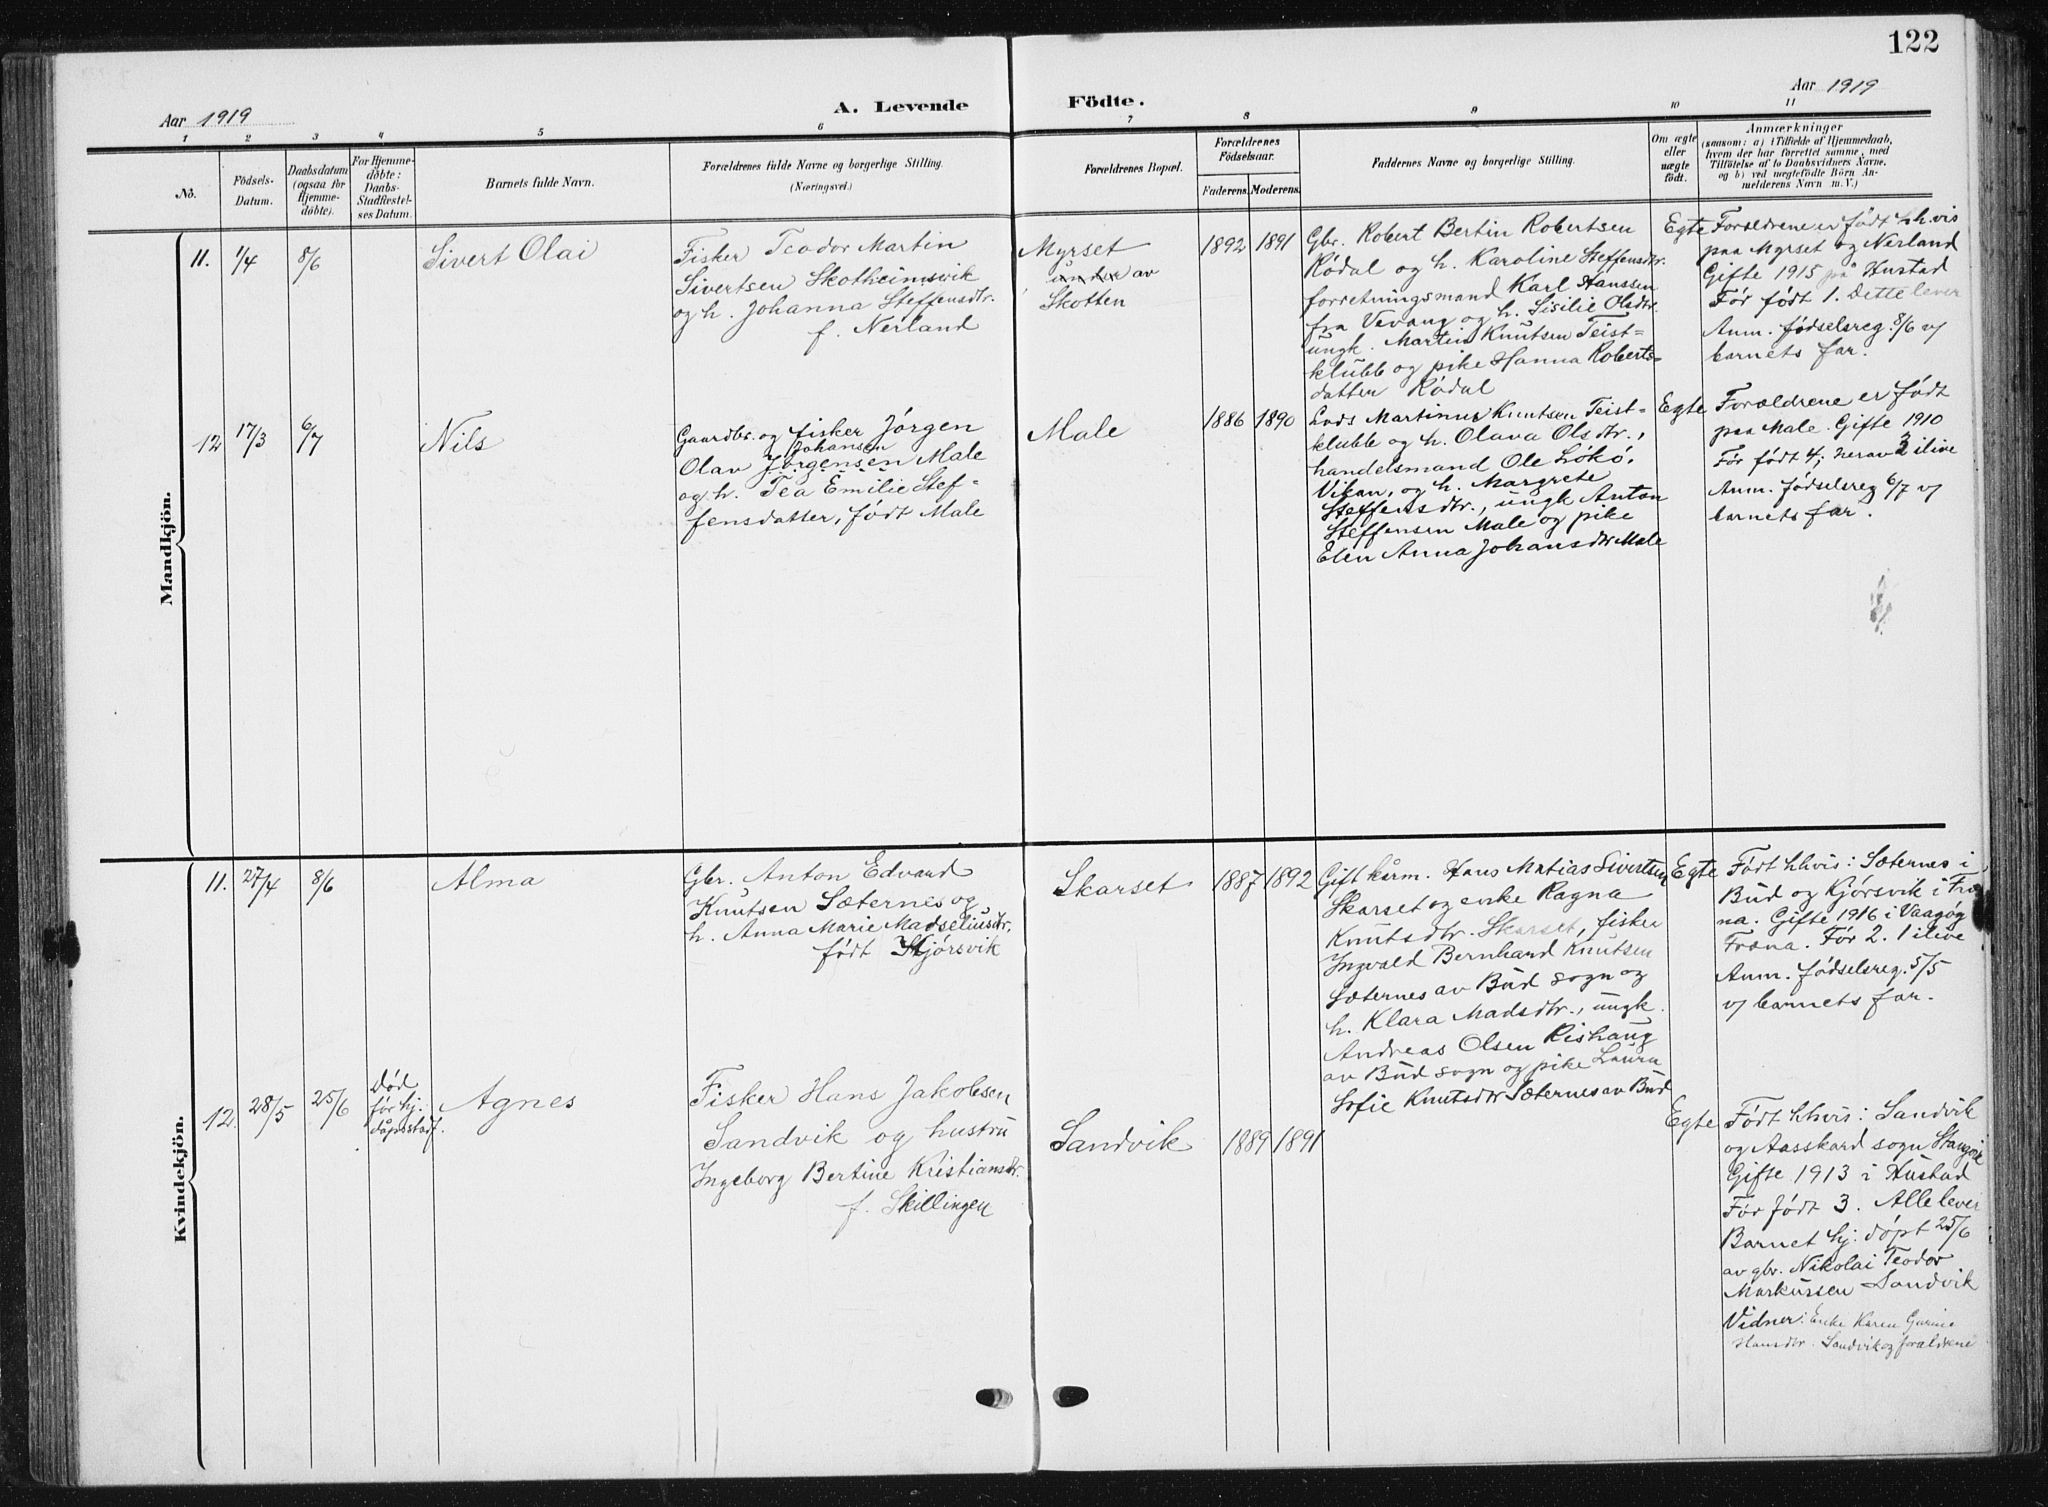 122
Aar 1919
A. Levende Födte.
Aar 1919
1 2 3 4 5 6 7 8 9 10 11
No.
Födsels-
Datum.
Daabsdatum
(ogsaa for
Hjemme-
döbte).
For Hjemme-
döbte:
Daabs-
Stadfæstel-
ses Datum.
Barnets fulde Navn.
Forældrenes fulde Navne og borgerlige Stilling.
(Næringsvei.)
Forældrenes Bopæl.
Forældrenes
Födselsaar.
Faderens. Moderens.
Faddernes Navne og borgerlige Stilling.
Om ægte
eller
uægte
födt.
Anmærkninger
(saasom: a) i Tilfælde af Hjemmedaab,
hvem der har forrettet samme, med
Tilföielse af to Daabsvidners Navne,
og b) ved uægtefödte Börn An-
melderens Navn m. V.)
Mandkjön.
11. 1/4 8/6
Sivert Olai
Fisker Teodor Martin
Sivertsen Skotheimsvik
og h. Johanna Steffensdtr.
f. Nerland
Myrset
av
Skotten
1892 1891
Gbr. Robert Bertin Robertsen
Rødal og h. Karoline Steffensdtr.
forretningsmand Karl Hanssen
fra Vevang og h. Sisilie Olsdtr.
ungk. Martin Knutsen Teist-
klubb og pike Hanna Roberts-
datter Rødal
Egte
Foreldrene er født hhvis
paa Myrset og Nerland
Gifte 1915 på Hustad
Før født 1. Dette lever
Anm. fødselsreg. 8/6 v/
barnets far.
12 17/3 6/7
Nils
Gaardbr. og fisker Jørgen
Johansen
Olav Jørgensen Male
og h. Tea Emilie Stef-
fensdatter, født Male
Male
1886 1890
Lods Martinus Knutsen Teist-
klubb og h. Olava Olsdtr.,
handelsmand Ole Løkø,
Vikan, og h. Margrete
Steffensdtr., ungk Anton
Steffensen Male og pike
Elen Anna Johansdtr Male
Egte
Forældrene er født
paa Male. Gifte 1910
Før født 4; herav 3 ilive
Anm. fødselsreg 6/7 v/
barnets far.
Kvindekjön.
11. 27/4 8/6
Alma
Gbr. Anton Edvard
Knutsen Sæternes og
h. Anna Marie Madseliusdtr.
født Kjørsvik
Skarset
1887 1892
Gift kårm. Hans Matias Sivertsen
Skarset og enke Ragna
Knutsdtr. Skarset, fisker
Ingvald Bernhard Knutsen
Sæternes av Bud sogn og
h. Klara Madsdtr., ungk.
Andreas Olsen Rishaug
av Bud sogn og pike Laura
Sofie Knutsdtr Sæternes av Bud
Egte
Født hhvis: Sæternes i
Bud og Kjørsvik i Fræ
na. Gifte 1916 i Vaagøy
Fræna. Før 2. 1 ilive
Anm. fødselsreg. 5/5
v/ barnets far.
12. 28/5 25/6
Død
før hj.
dåpsstadf.
Agnes
Fisker Hans Jakobsen
Sandvik og hustru
Ingeborg Bertine Kristiansdtr.
f. Skillingen
Sandvik
1889 1891
Egte
Født hhvis: Sandvik
og Aasskard sogn Stangvik
Gifte 1913 i Hustad
Før født 3. Alle lever
Barnet hj. døpt 25/6
av gbr. Nikolai Teodor
Markussen Sandvik
Vidner: Enke Karen Gurine
Hansdtr. Sandvik og forældrene